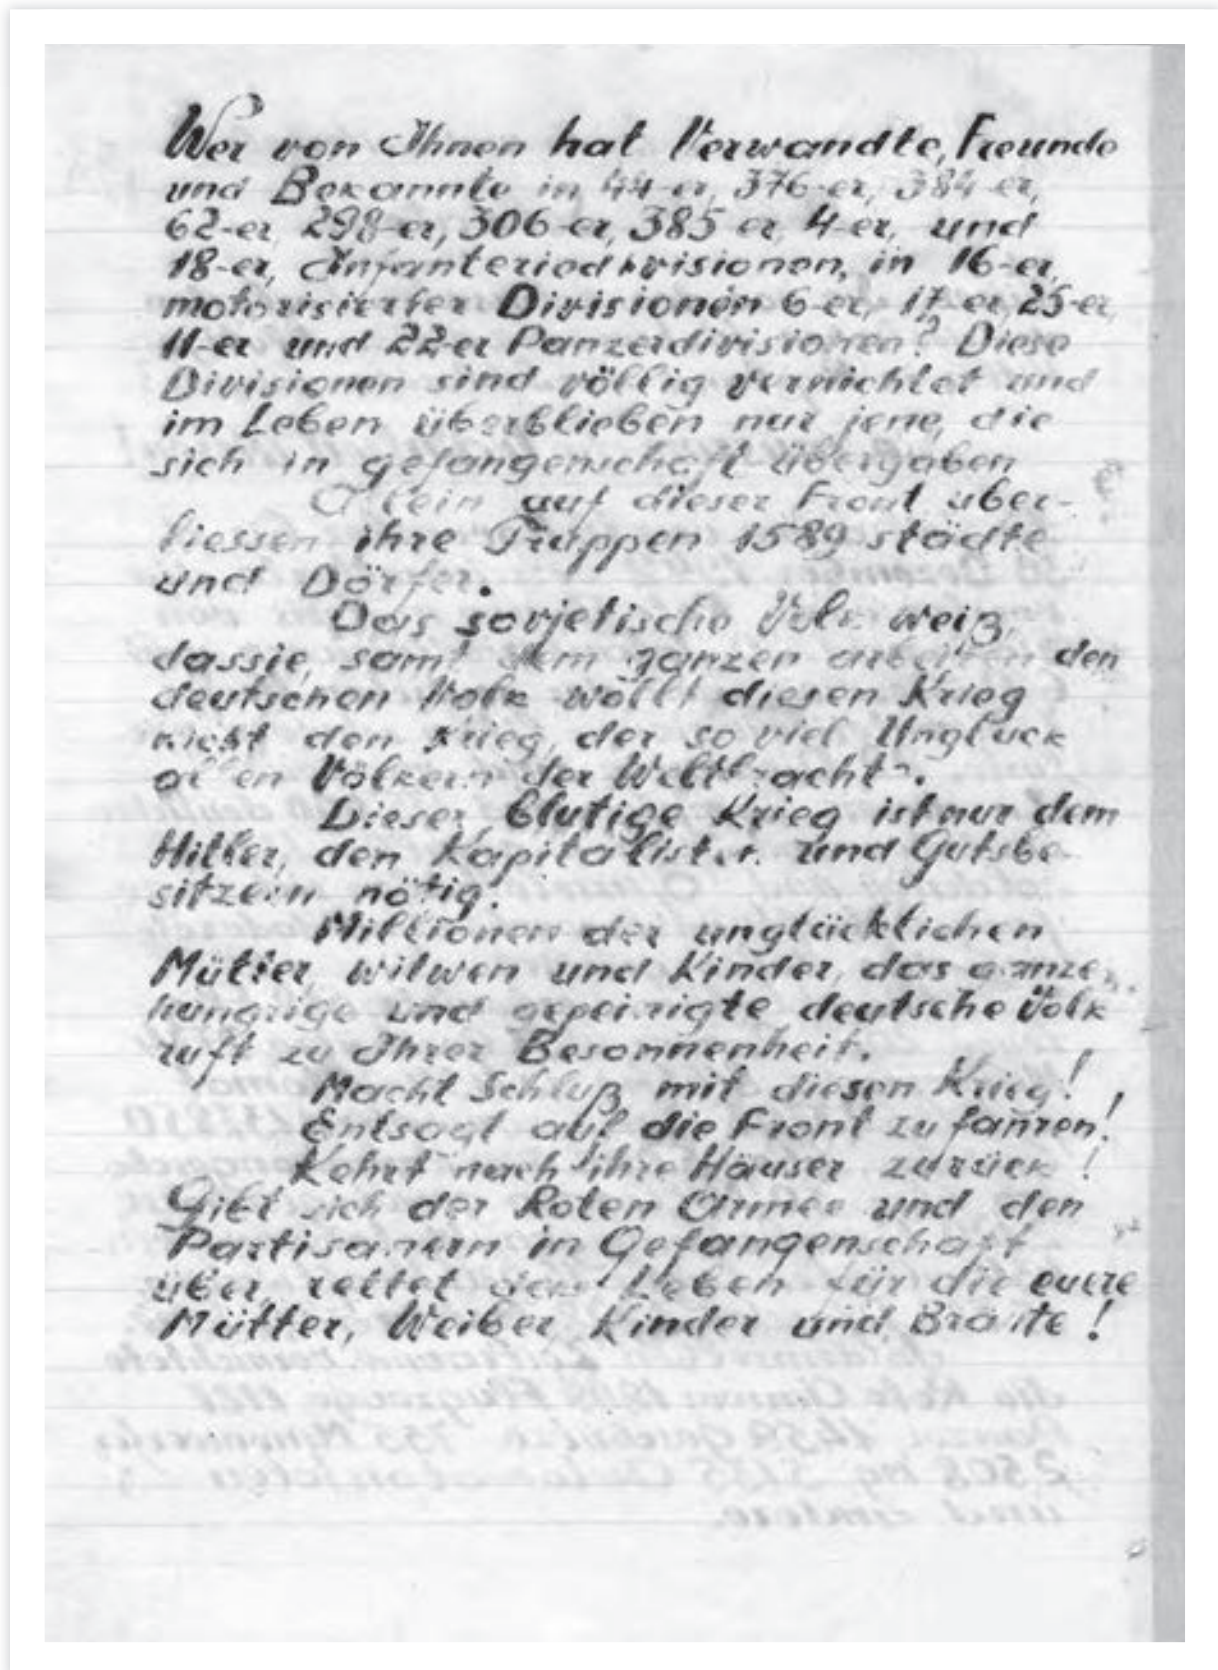 Wer von Ihnen hat Verwandte, Freunde
und Bekannte in 44-er, 376-er, 384-er,
62-er 298-er, 306-er, 385 er 4-er, und
18-er, Infanteriedivisionen, in 16-er,
motorisierter Divisionen 6-er, 17-er, 25-er,
11-er und 22-er Panzerdivisionen? Diese
Divisionen sind völlig vernichtet und
im Leben überblieben nur jene, die
sich in gefangenschaft übergaben
Allein auf dieser Front uber-
liessen ihre Truppen 1589 städte
und Dörfer.
Das sovjetische Volk weiß,
dassie, samt dem ganzen den
deutschen Volk wollt diesen Krieg
nicht den Krieg, der so viel Ungluck
allen Völkern der Welt
Dieser blutige Krieg ist nur dem
Hitler, den Kapitalisten und Gutsbe-
sitzern nötig.
Millionen der unglücklichen
Mütter, witwen und Kinder, das ganze,
hungrige und gepeinigte deutsche Volk
ruft zu Ihrer Besonnenheit.
Macht Schluß mit diesen Krieg!
Entsagt auf die Front zu fahren!
Kehrt nach ihre Häuser zurück!
Gibt sich der Roten Armee und den
Partisanern in Gefangenschaft
über, rettet Leben für die euere
Mütter, Weiber Kinder und Bräute!